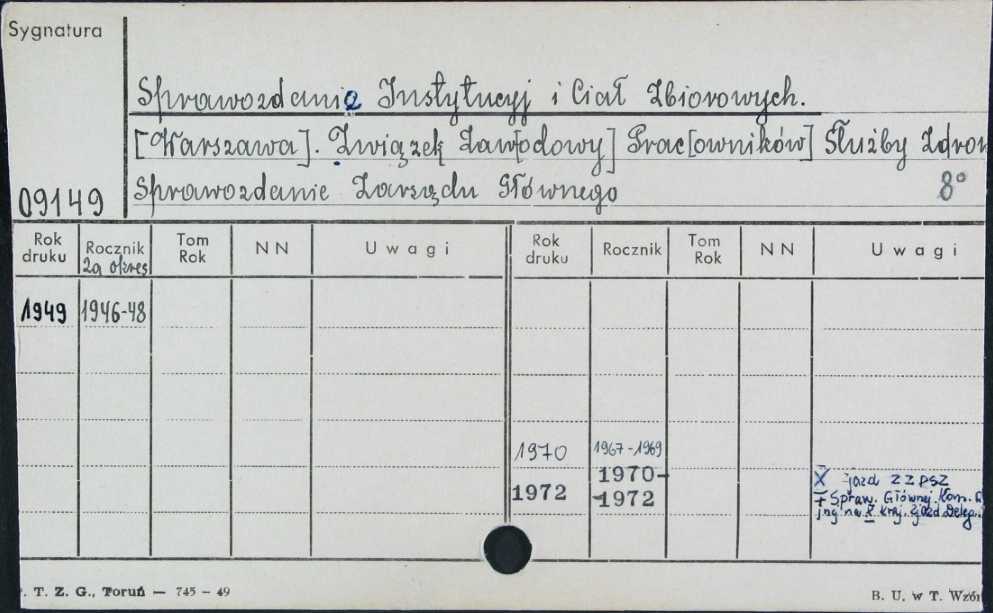 Sygnatura
Sprawozdania Instytucyj i Ciał Zbiorowych.
[Warszawa]. Związek Zaw[odowy] Prac[owników] Służby Zdrow
09149 Sprawozdanie Zarządu Głównego 8°
Rok druku Rocznik Za okres Tom Rok NN Uwagi Rok druku Rocznik Tom Rok NN Uwagi
1949 1946-48
1970 1967-1969
1972 1970-1972
X zjazd ZZPSZ
+ Spraw. Głównej Kom.
na X kraj. zjazd Deleg.
. T. Z. G., Toruń — 745 — 49
B. U. w T. Wzór